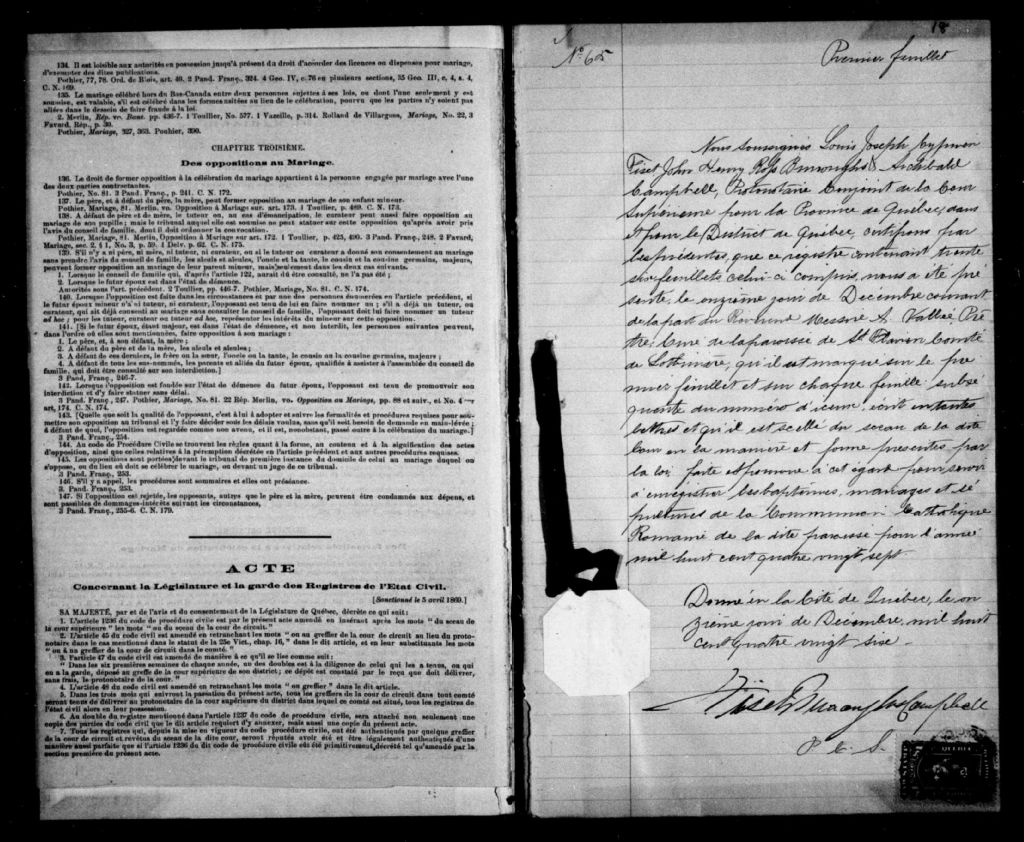 134. Il est loisible aux autorités en possession jusqu'à présent du droit d'accorder des licences ou dispenses pour mariage,
d'exempter des dites publications.
Pothier, 77, 78. Ord. de Blois, art. 40. 2 Pand. Franç., 324. 4 Geo. IV, c. 76 en plusieurs sections, 35 Geo. III, c, 4, s. 4,
C. N. 169.
135. Le mariage célébré hors du Bas-Canada entre deux personnes sujettes à ses lois, ou dont l'une seulement y est
soumise, est valable, s'il est célébré dans les formes usitées au lieu de la célébration, pourvu que les parties n'y soient pas
allées dans le dessein de faire fraude à la loi.
2. Merlin, Rép. vo. Bans. pp. 436-7. 1 Toullier, No. 577. 1 Vazeille, p. 314. Rolland de Villargues, Mariage, No. 22, 3
Favard, Rép., p. 30.
Pothier, Mariage, 327, 363. Pouhier, 390.
CHAPITRE TROISIÈME.
Des oppositions au Mariage.
136. Le droit de former opposition à la célébration du mariage appartient à la personne engagée par mariage avec l'une
des deux parties contractantes.
Pothier, No. 81. 3 Pand. Franç., p. 241. C. N. 172.
137. Le père, et à défaut du père, la mère, peut former opposition au mariage de son enfant mineur.
Pothier, Mariage, 81. Merlin, vo. Opposition à Mariage sur. art. 173. 1 Toullier, p. 469. C. N. 173.
138. A défaut de père et de mère, le tuteur ou, au cas d'émancipation, le curateur peut aussi faire opposition au
mariage de son pupille; mais le tribunal auquel elle est soumise ne peut statuer sur cette opposition qu'après avoir pris
l'avis du conseil de famille, dont il doit ordonner la convocation.
Pothier, Mariage, 81. Merlin, Opposition à Mariage sur art. 172. 1 Toullier, p. 425, 490. 3 Pand. Franç., 248. 2 Favard,
Mariage, sec. 2, § 1, No. 3, p. 59. 1 Delv. p. 62. C. N. 175.
139. S'il n'y a ni père, ni mère, ni tuteur, ni curateur, ou si le tuteur ou curateur a donné son consentement au mariage
sans prendre l'avis du conseil de famille, les aïeuls et aïeules, l'oncle et la tante, le cousin et la cousine germains, majeurs,
peuvent former opposition au mariage de leur parent mineur, mais seulement dans les deux cas suivants.
1. Lorsque le conseil de famille qui, d'après l'article 122, aurait dû être consulté, ne l'a pas été;
2. Lorsque le futur époux est dans l'état de démence.
Autorités sous l'art. précédent. 2 Toullier, pp. 446-7. Pothier, Mariage, No. 81. C. N. 174.
140. Lorsque l'opposition est faite dans les circonstances et par une des personnes énumérées en l'article précédent, si
le futur époux mineur n'a ni tuteur, ni curateur, l'opposant est tenu de lui en faire nommer un; s'il a déjà un tuteur, ou
curateur, qui ait déjà consenti au mariage sans consulter le conseil de famille, l'opposant doit lui faire nommer un tuteur
ad hoc; pour les tuteur, curateur ou tuteur ad hoc, représenter les intérêts du mineur sur cette opposition.
141. [Si le futur époux, étant majeur, est dans l'état de démence, et non interdit, les personnes suivantes peuvent,
dans l'ordre où elles sont mentionnées, faire opposition à son mariage:
1. Le père, et, à son défaut, la mère;
2. A défaut du père et de la mère, les aïeuls et aïeules;
3. A défaut de ces derniers, le frère ou la sœur, l'oncle ou la tante, le cousin ou la cousine germains, majeurs;
4. A défaut de tous les sus-nommés, les parents et alliés du futur époux, qualifiés à assister à l'assemblée du conseil de
famille, qui doit être consulté sur son interdiction.]
3 Pand. Franç., 246-7.
142. Lorsque l'opposition est fondée sur l'état de démence du futur époux, l'opposant est tenu de promouvoir son
interdiction et d'y faire statuer sans délai.
3 Pand. Franç., 247. Pothier, Mariage, No. 81. 22 Rép. Merlin, vo. Opposition au Mariage, pp. 88 et suiv., et No. 4
art, 174. C. N. 174.
143. [Quelle que soit la qualité de l'opposant, c'est à lui à adopter et suivre les formalités et procédures requises pour soumettre
son opposition au tribunal et l'y faire décider sous les délais voulus, sans qu'il soit besoin de demande en main-levée;
à défaut de quoi, l'opposition est regardée comme non avenu, et il est, nonobstant, passé outre à la célébration du mariage.]
3 Pand. Franç., 254.
144. Au code de Procédure Civile se trouvent les règles quant à la forme, au contenu et à la signification des actes
d'opposition, ainsi que celles relatives à la péremption décrétée en l'article précédent et aux autres procédures requises.
145. Les oppositions sont portées devant le tribunal de première instance du domicile de celui au mariage duquel on
s'oppose, ou du lieu où doit se célébrer le mariage, ou devant un juge de ce tribunal.
3 Pand. Franç., 253.
146. S'il y a appel, les procédures sont sommaires et elles ont préséance.
3. Pand. Franç., 253.
147. Si l'opposition est rejetée, les opposants, autres que le père et la mère, peuvent être condamnés aux dépens, et
sont passibles de dommages-intérêts suivant les circonstances,
3 Pand. Franç., 255-6. C. N. 179.
ACTE
Concernant la Législature et la garde des Registres de l'Etat Civil.
[Sanctionné le 5 avril 1869.]
SA MAJESTÉ, par et de l'avis et du consentement de la Législature de Québec, décrète ce qui suit:
1. L'article 1236 du code de procédure civile est par le présent acte amendé en insérant après les mots "du sceau de
la cour supérieure" les mots "ou du sceau de la cour de circuit."
2. L'article 45 du code civil est amendé en retranchant les mots "ou au greffier de la cour de circuit au lieu du protonotaire
dans le cas mentionné dans le statut de la 25e Vict., chap. 16," dans le dit article, et en leur substituants les mots
"ou à un greffier de la cour de circuit dans le comté."
3. l'article 47 du code civil est amendé de manière à ce qu'il se lise comme suit:
"Dans les six premières semaines de chaque année, un des doubles est à la diligence de celui qui les a tenus, ou qui
en a la garde, déposé au greffe de la cour supérieure de son district; ce dépôt est constaté par le reçu que doit délivrer,
sans frais, le protonotaire de la cour."
4. L'article 48 du code civil est amendé en retranchant les mots "ou greffier" dans le dit article.
5. Dans les trois mois qui suivront la passation du présent acte, tous les greffiers de la cour de circuit dans tout comté
seront tenus de délivrer au protonotaire de la cour supérieure du district dans lequel ce comté est situé, tous les registres de
l'état civil alors en leur possession.
6. Au double du registre mentionné dans l'article 1237 du code de procédure civile, sera attaché non seulement une
copie des parties du code civil que le dit article requiert d'y annexer, mais aussi une copie du présent acte.
7. Tous les registres qui, depuis la mise en vigueur du code de procédure civile, ont été authentiqués par quelque greffier
de la cour de circuit et revêtus du sceau de la dite cour, seront réputés avoir été et être légalement authentiqués d'une
manière aussi parfaite que si l'article 1236 du dit code de procédure civile eût été primitivement décrété tel qu'amendé par la
section première du présent acte.
18
No 605
Premier feuillet
Nous soussignés Louis Joseph Cyprien
Fiset John Henry Ross Burroughs & Archibald
Campbell, Protonotaire Conjoint de la Cour
Supérieure pour la Province de Québec, dans
et pour le District de Québec, certifions par
les présentes, que ce registre contenant trente
six feuillets celui-ci compris, nous a été pré
senté, le onzième jour de Décembre courant
de la part du Révérend Messire A. Vallée Prê
tre, Curé de la paroisse de St Flavien Comté
de Lotbinière, qu'il est marqué sur le pre
mier feuillet et sur chaque feuillet subsé
quent du numéro d'icelui, écrit en toutes
lettres et qu'il est scellé du sceau de la dite
Cour en la manière et forme prescrites par
la loi, faite et pourvue à cet égard pour servir
à enregistrer les baptêmes, mariages et sé
pultures de la Communion Catholique
Romaine de la dite paroisse pour l'année
mil huit cent quatre vingt sept
Donné en la Cité de Québec, le on
zième jour de Décembre, mil huit
cent quatre vingt six
Fiset Burroughs Campbell
P. C. S.
QUEBEC